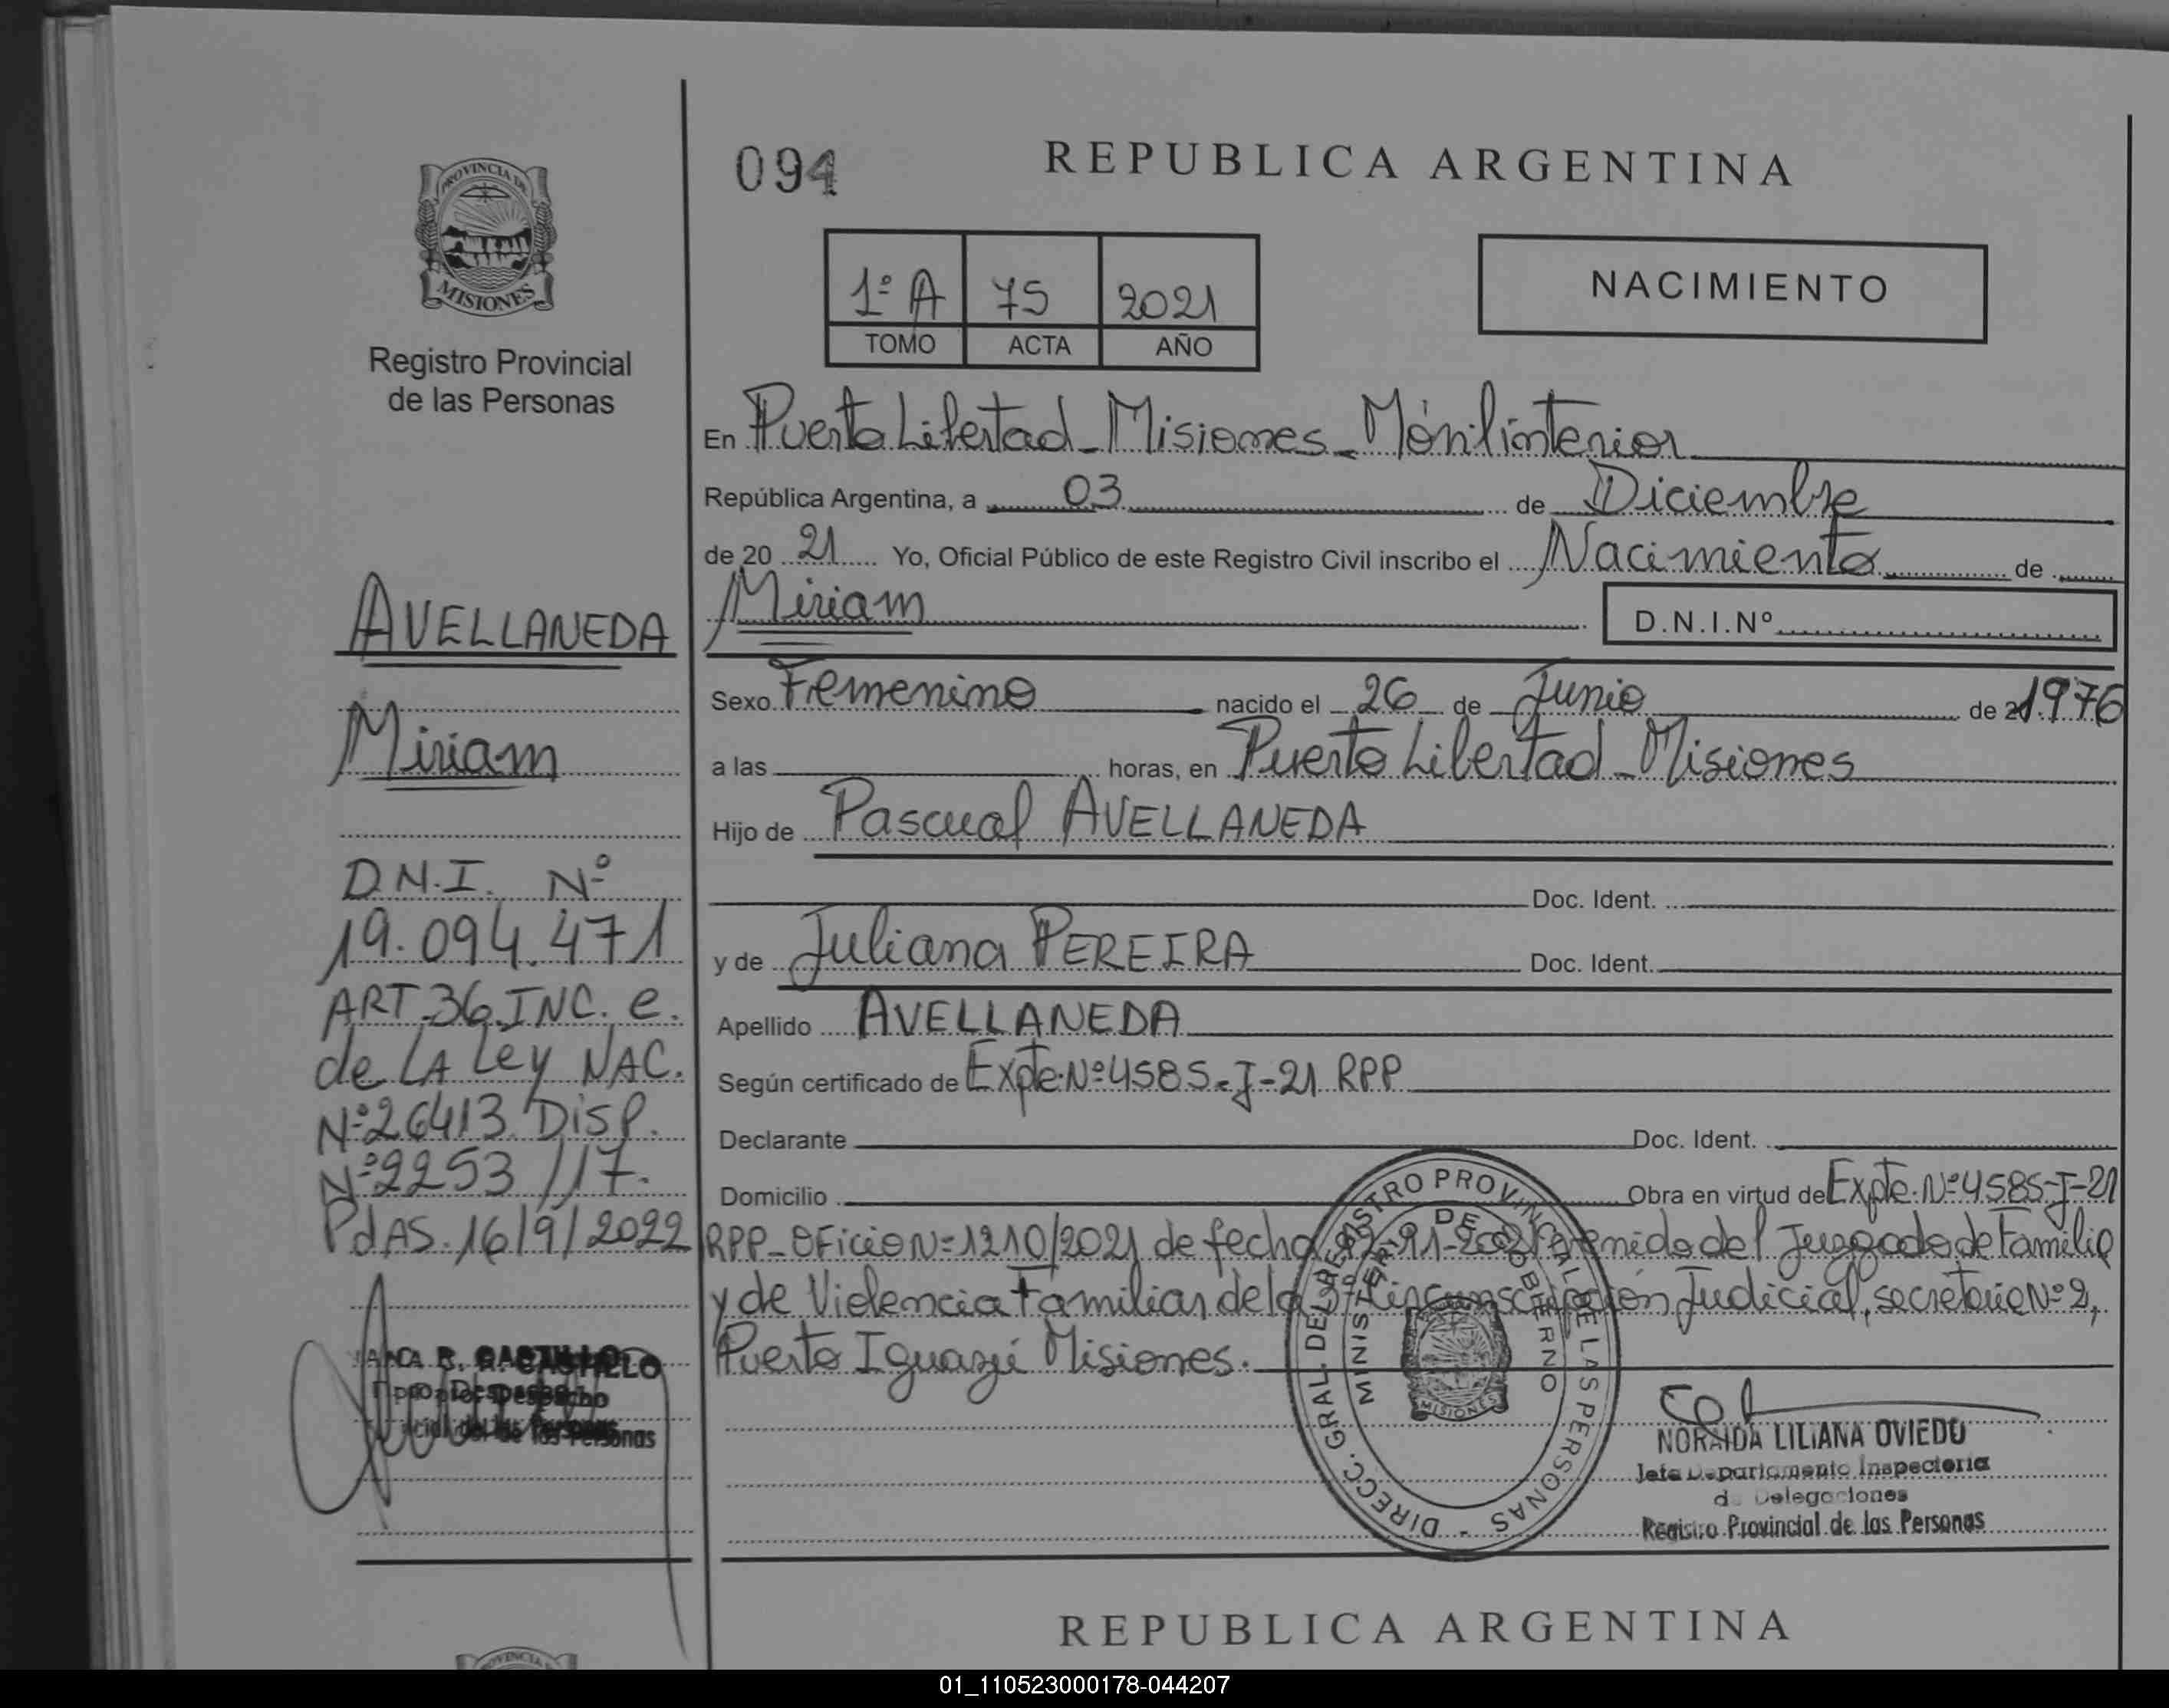 094
REPUBLICA ARGENTINA
PROVINCIA DE
MISIONES
Registro Provincial
de las Personas
1º A 75 2021
TOMO ACTA AÑO
NACIMIENTO
En Puerto Libertad - Misiones - Móvil interior
República Argentina, a 03 de Diciembre
de 20 21 Yo, Oficial Público de este Registro Civil inscribo el Nacimiento de
Miriam
D.N.I.Nº
Sexo Femenino nacido el 26 de Junio de 1976
a las horas, en Puerto Libertad - Misiones
Hijo de Pascual AVELLANEDA
Doc. Ident.
y de Juliana PEREIRA Doc. Ident.
Apellido AVELLANEDA
Según certificado de Expte. Nº 4585-J-21 RPP
Declarante Doc. Ident.
Domicilio Obra en virtud de Expte. Nº 4585-J-21
RPP - Oficio Nº 1210/2021 de fecha del Juzgado de Familia
y de Violencia Familiar de la Circunscripción Judicial, secretaria Nº 2,
Puerto Iguazú Misiones.
AVELLANEDA
Miriam
D.N.I. Nº
19.094.471
ART. 36 INC. e.
de LA Ley NAC.
Nº 26413 DISP.
Nº 2253/17.
PdAS. 16/9/2022
CASTILLO
Despacho
de las Personas
DIRECC. GRAL. DEL REGISTRO PROVINCIAL DE LAS PERSONAS
MINISTERIO DE GOBIERNO
MISIONES
NORAIDA LILIANA OVIEDO
Jefe Departamento Inspectoria
de Delegaciones
Registro Provincial de las Personas
REPUBLICA ARGENTINA
01_110523000178-044207